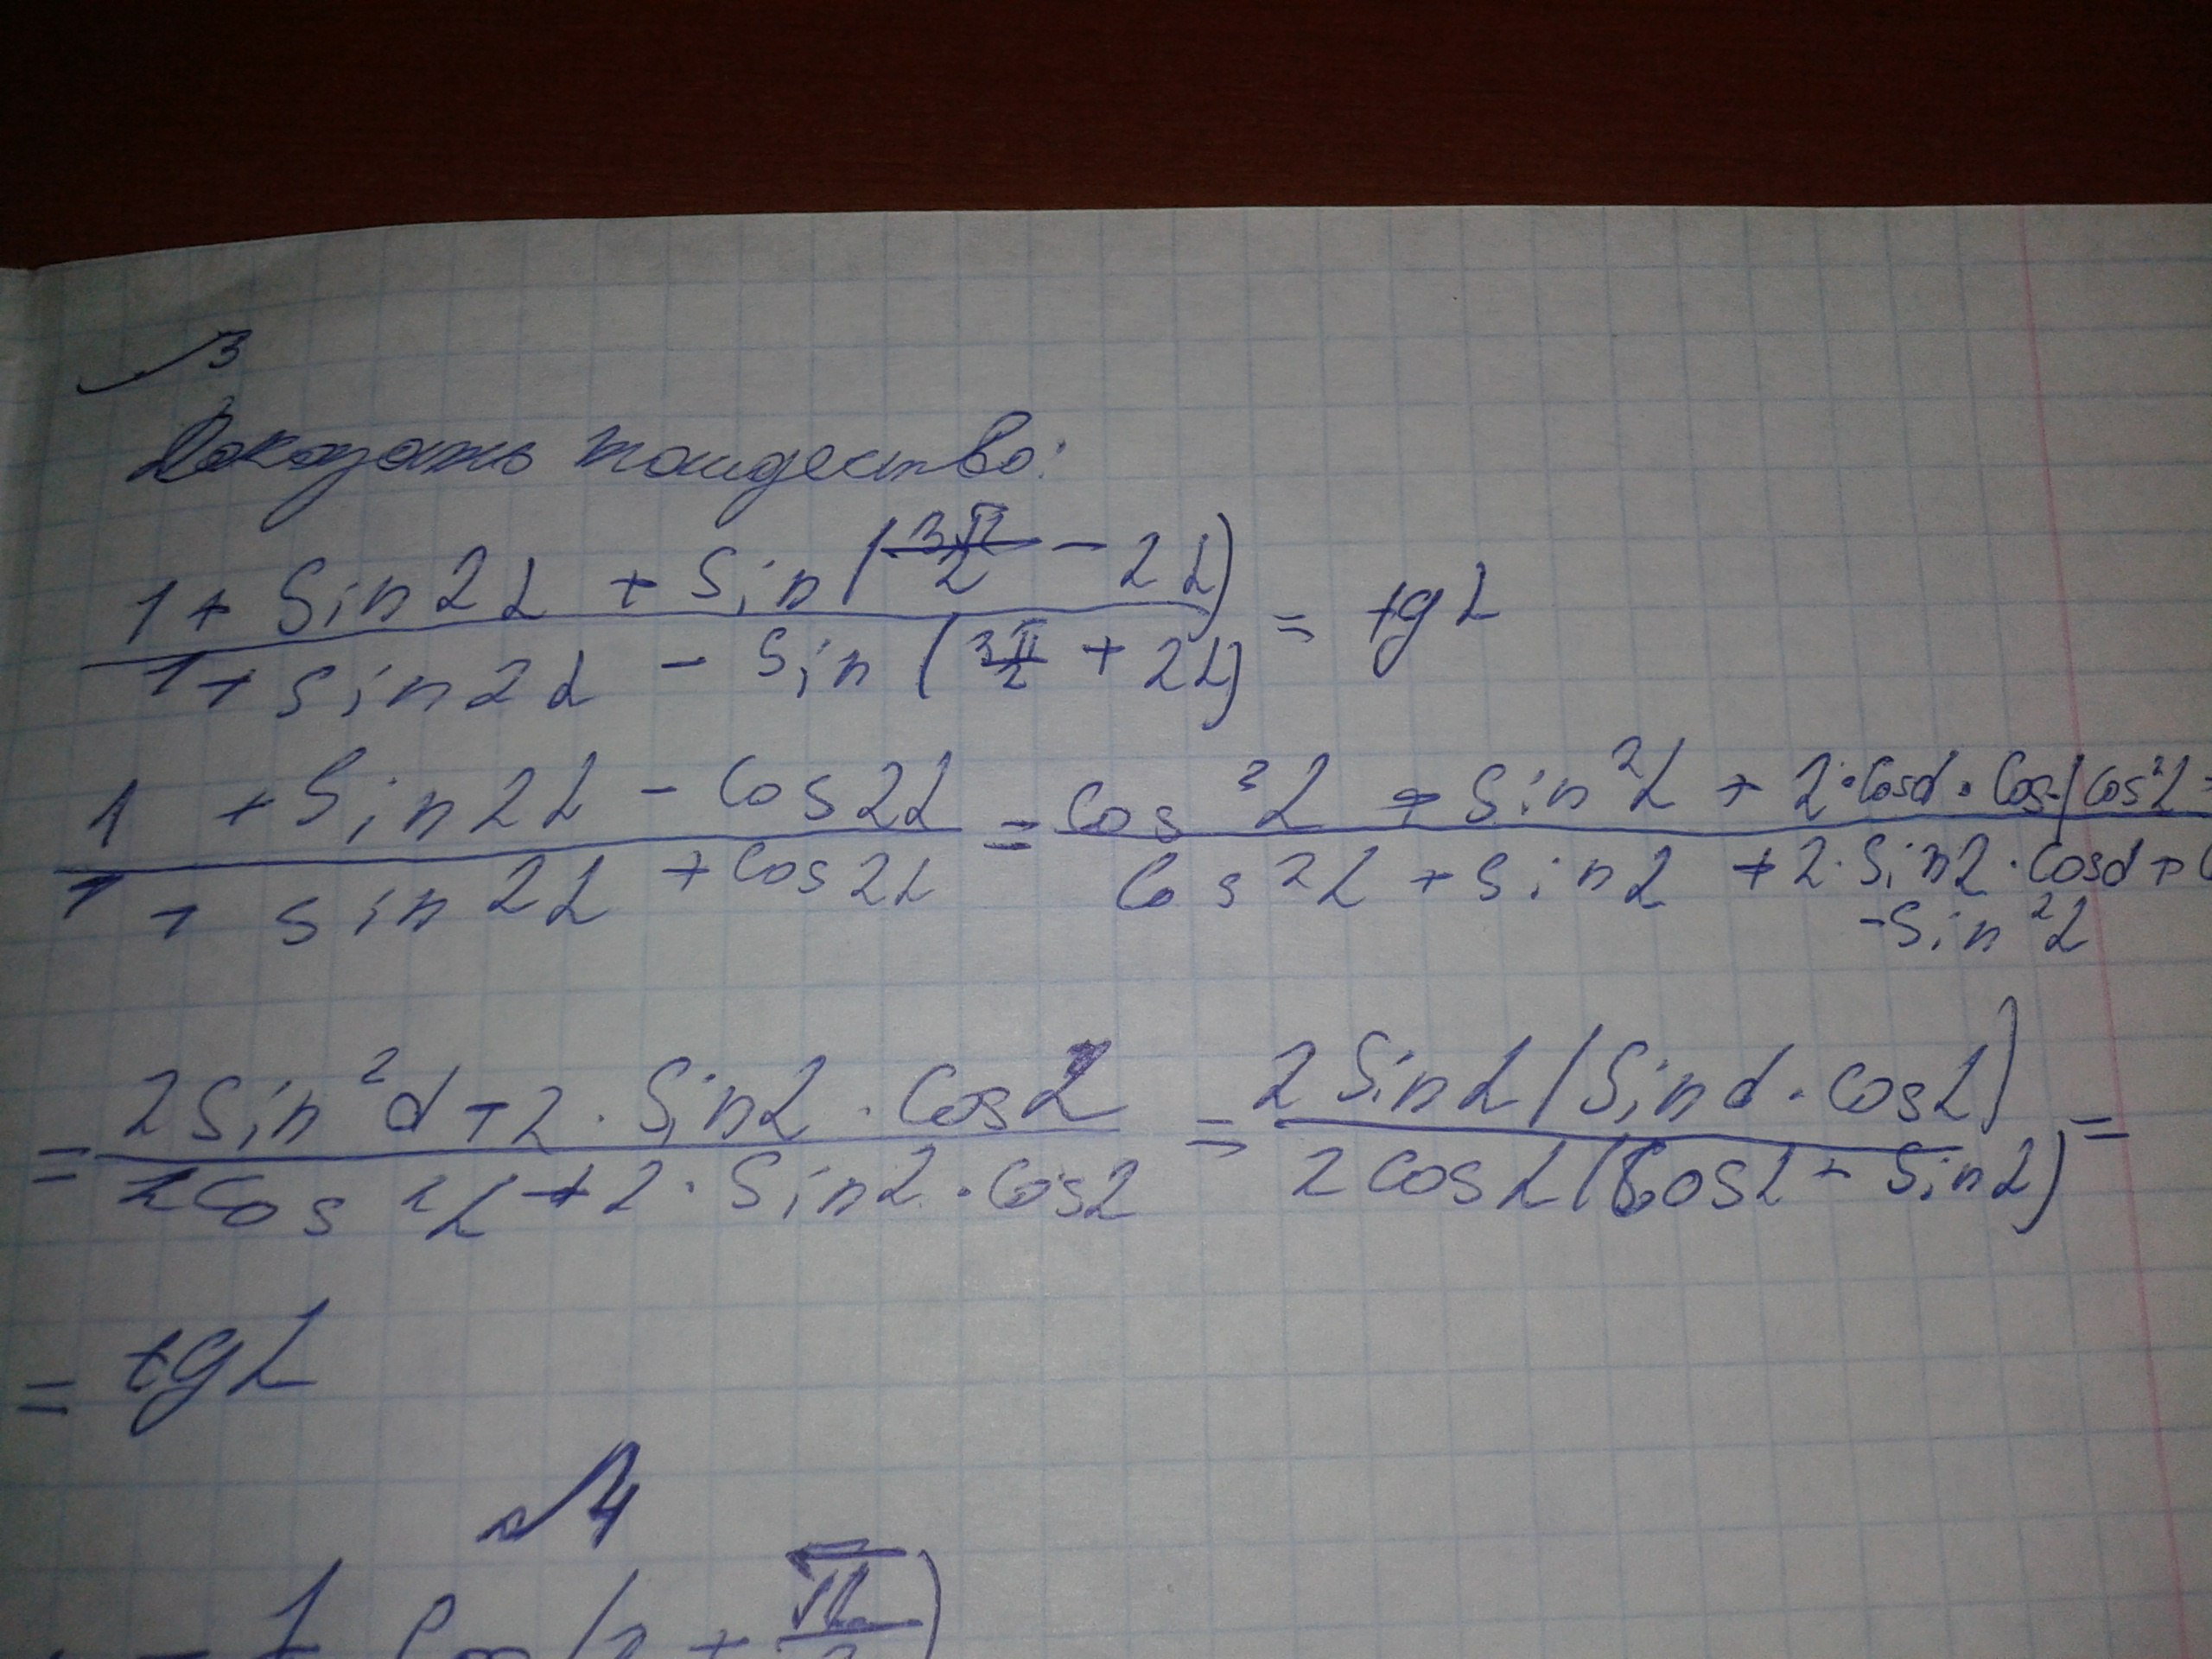 №3
Доказать тождество:
1 + Sin 2α + Sin (3π/2 - 2α) / 1 + sin 2α - Sin (3π/2 + 2α) = tg α
1 + Sin 2α - Cos 2α / 1 + sin 2α + Cos 2α = Cos²α + Sin²α + 2·Cosα·Cos-(Cos²α / Cos²α + Sin α + 2·Sin α·Cosα +
-Sin²α
= 2Sin²α + 2·Sin α·Cos α / 2Cos²α + 2·Sin α·Cos α = 2Sin α (Sin α·Cos α) / 2Cos α (Cos α + Sin α) =
= tg α
№4